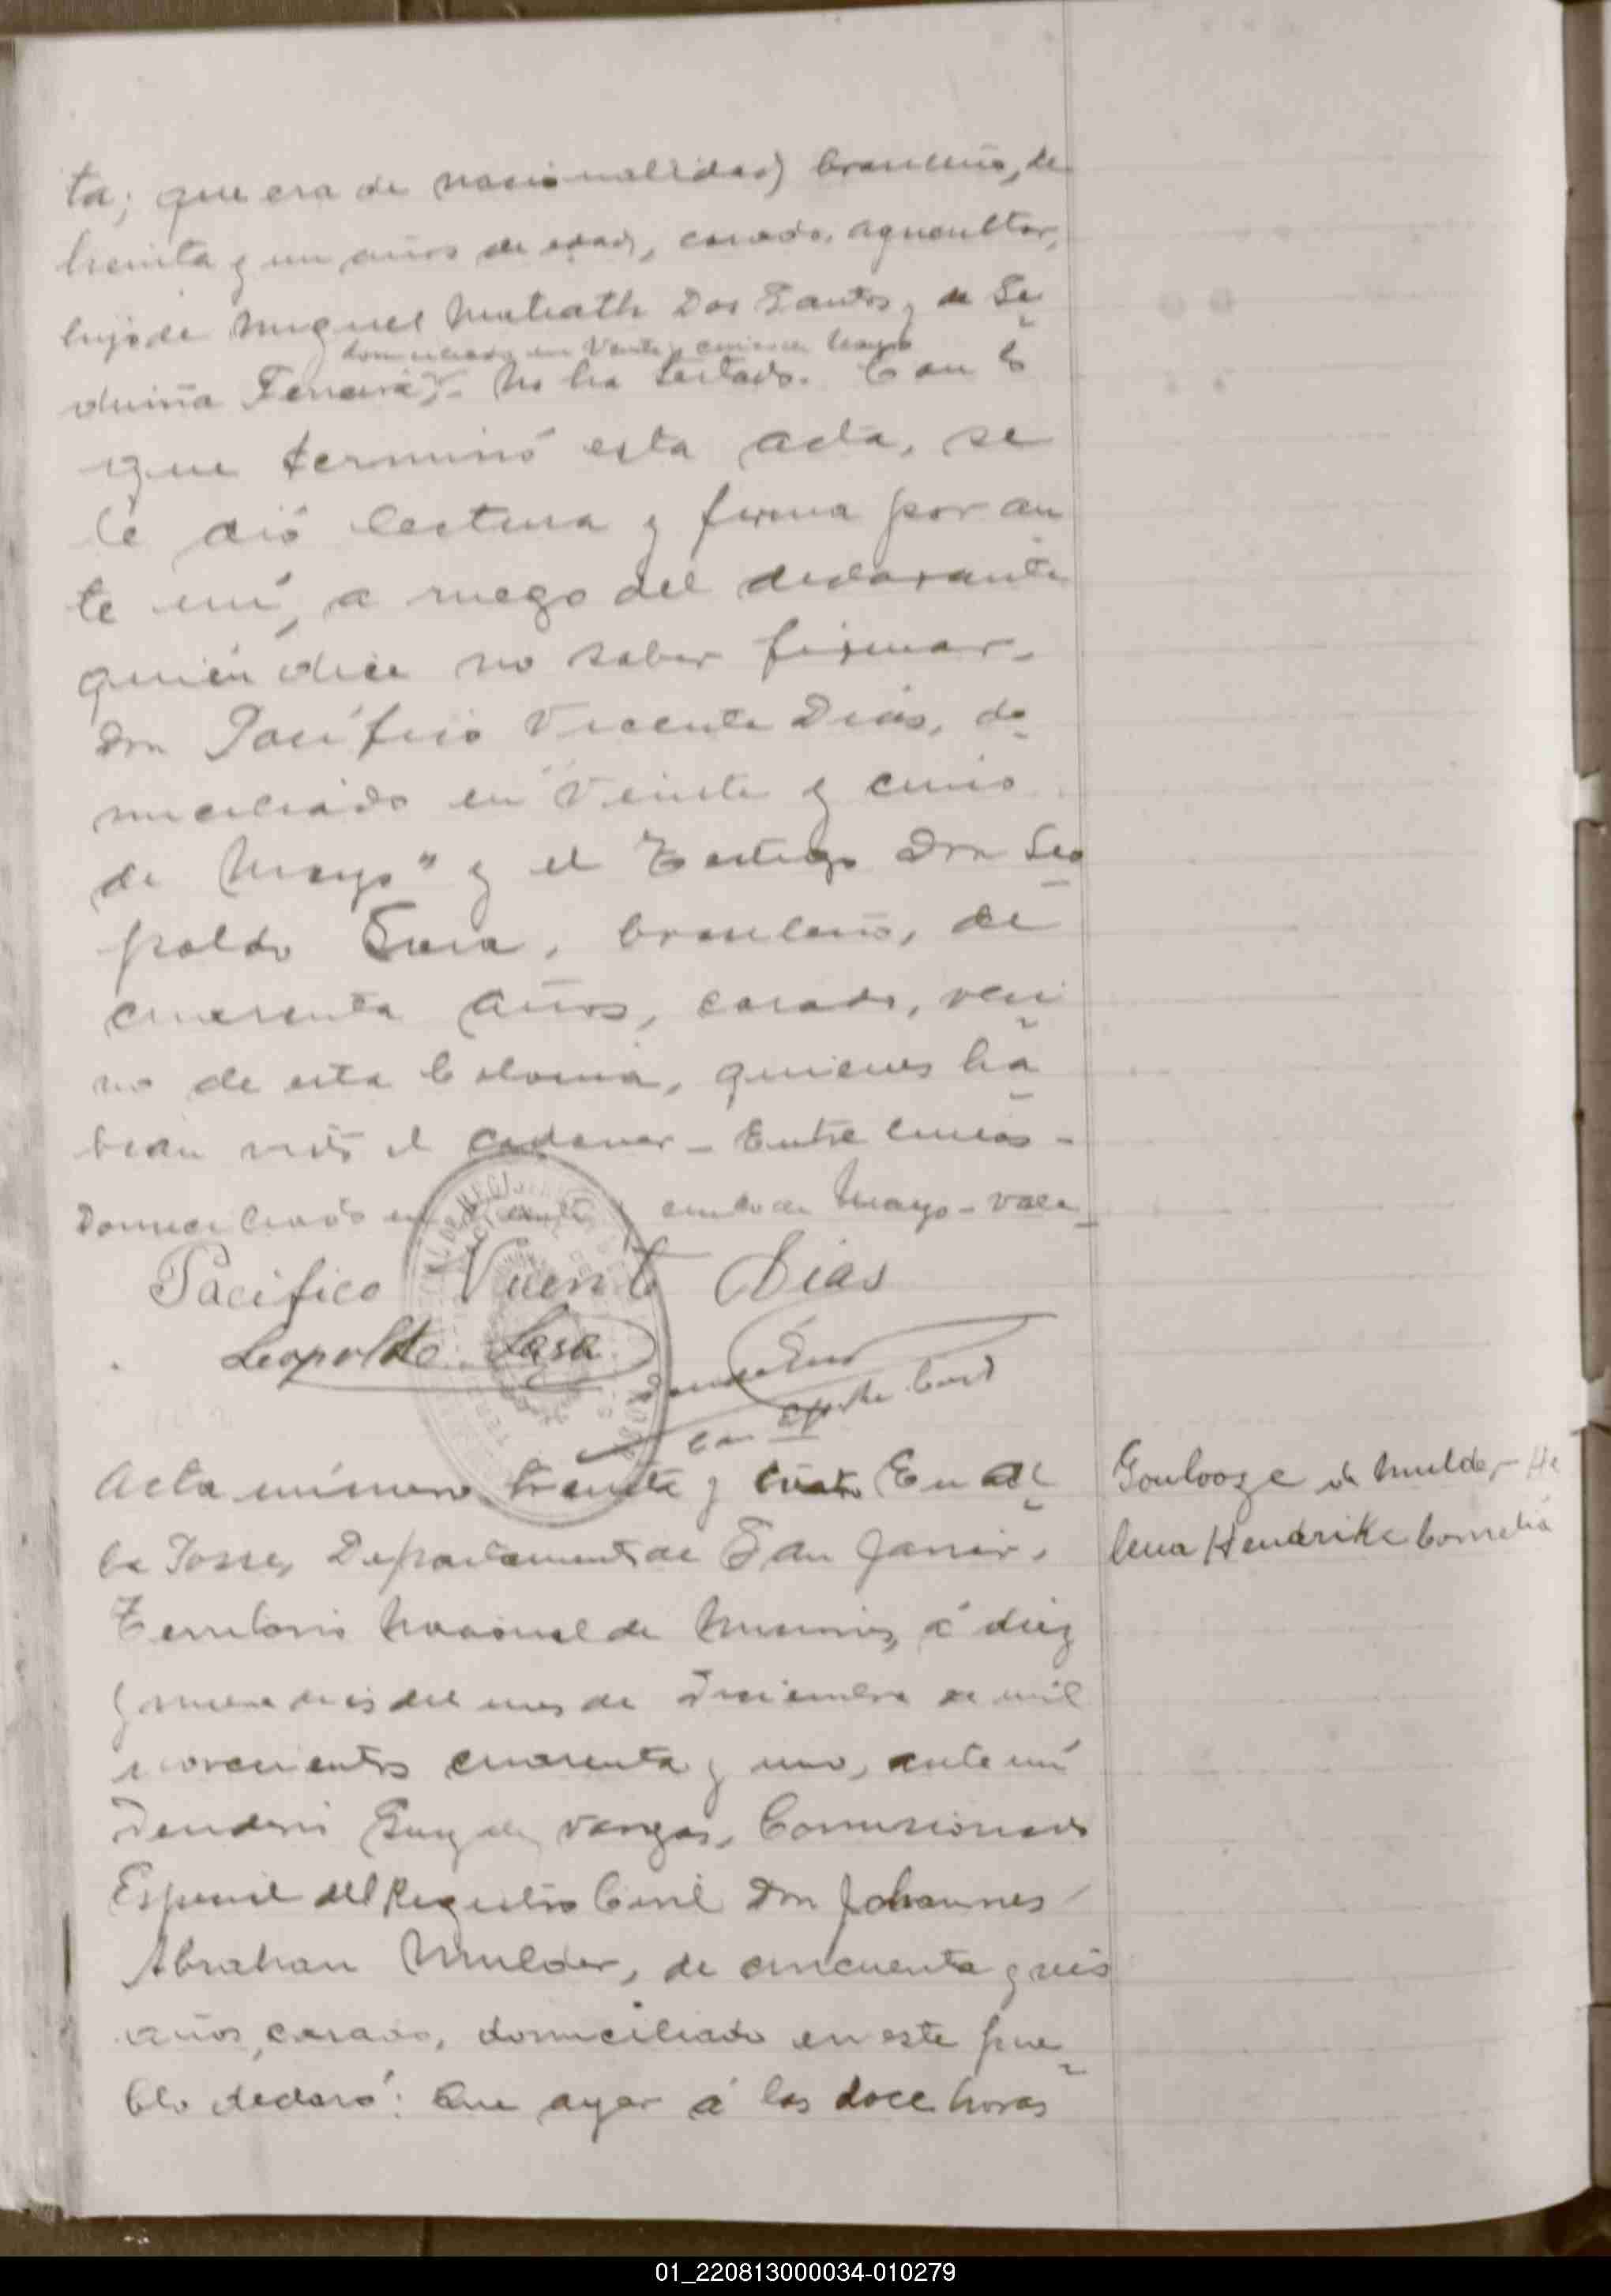 ta; que era de nacionalidad brasileño, de
treinta y un años de edad, casado, agricultor,
hijo de Miguel Dos Santos, y de Se
domiciliado en Veinte y cinco de Mayo
duina Ferreira - No ha testado. Con lo
que terminó esta acta, se
le dió lectura y firma por an
te mí, a ruego del declarante
quién dice no saber firmar-
Don Pacífico Vicente Dias, do-
miciliado en "Veinte y cinco
de Mayo" y el testigo Don Leo
poldo Sosa, brasileño, de
cuarenta años, casado, veci
no de esta Colonia, quienes ha
bian visto el cadaver - Entre lineas -
Domiciliado en Veinte y cinco de Mayo - vale -
Pacifico Vicente Dias
Leopoldo
Acta número treinta y cuatro En el
Departamento de San Javier,
Territorio Nacional de Misiones, á diez
y nueve dias del mes de Diciembre de mil
novecientos cuarenta y uno, ante mí
Vargas, Comisionado
Especial del Registro Civil Don Johannes
Abrahan Mulder, de cincuenta y seis
años, casado, domiciliado en este pue-
blo declaró: Que ayer á las doce horas
Goulooze de Mulder - He
lena Hendrike Cornelia
01_220813000034-010279